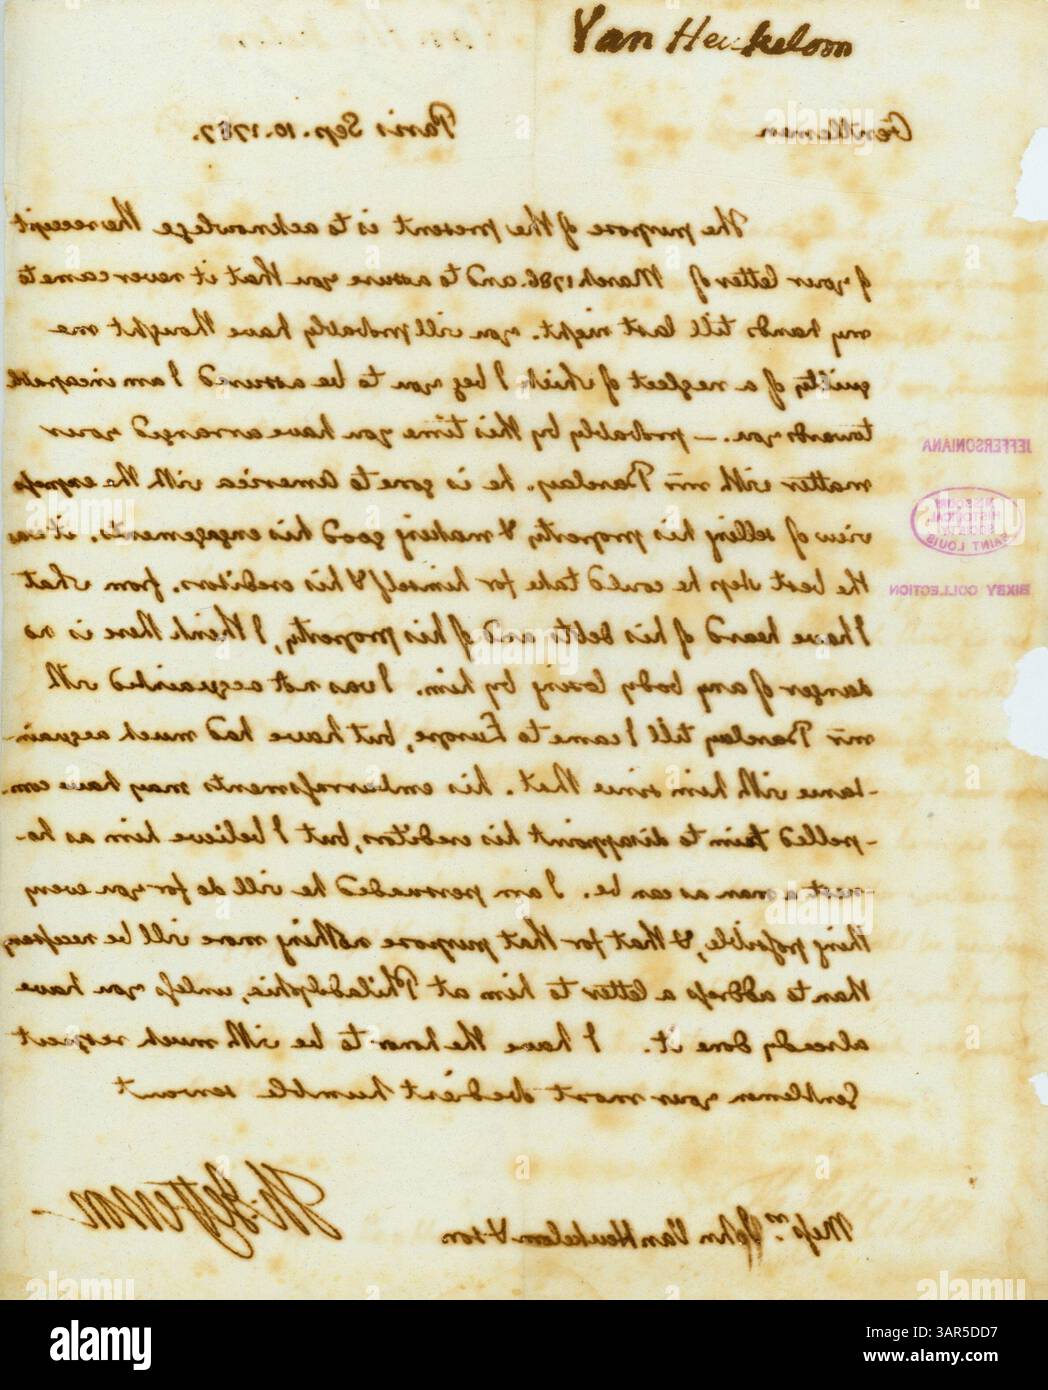 Van Heukelom
Gentlemen Paris Sep. 10. 1787.
The purpose of the present is to acknolege the receipt
of your letter of March 1786. and to assure you that it never came to
my hands till last night. you will probably have thought me
guilty of a neglect of which I beg you to be assured I am incapable
towards you. — probably by this time you have arranged your
matter with mr Barclay. he is gone to America with the express
view of selling his property & making good his engagements. it was
the best step he could take for himself & his creditors. from what
I have heard of his debts and of his property, I think there is no
danger of any body losing by him. I was not acquainted with
mr Barclay till I came to Europe, but have had much acquain-
-tance with him since that. his embarrassments may have com-
-pelled him to disappoint his creditors, but I believe him as ho-
nest a man as can be. I am persuaded he will do for you every
thing possible, & that for that purpose nothing more will be necessary
than to address a letter to him at Philadelphia, unless you have
already done it. I have the honor to be with much respect
Gentlemen your most obedient humble servant
Th: Jefferson
Messrs. John Van Heukelom & son
JEFFERSONIANA
MISSOURI
HISTORICAL
SOCIETY
SAINT LOUIS
BIXBY COLLECTION
alamy
Image ID: 3AR5DD7
www.alamy.com